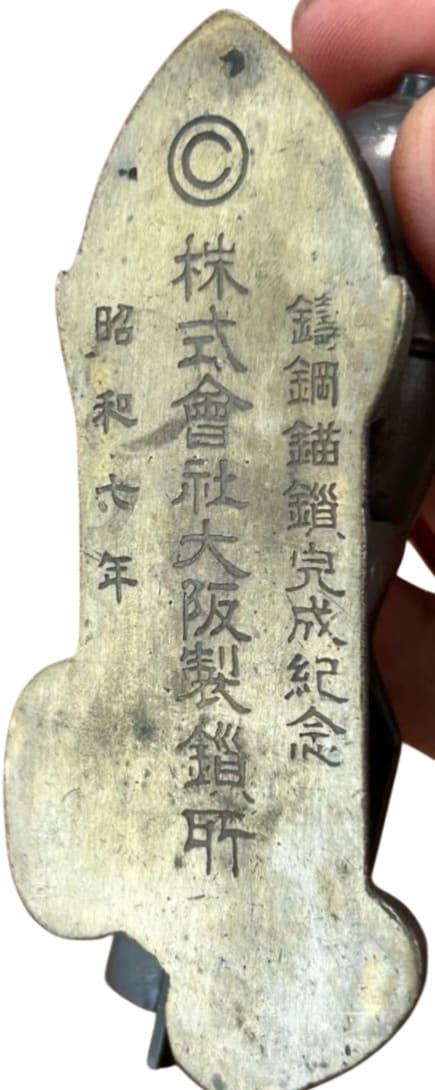 鑄鋼錨鎖完成紀念
Ⓒ
株式會社大阪製鎖所
昭和六年